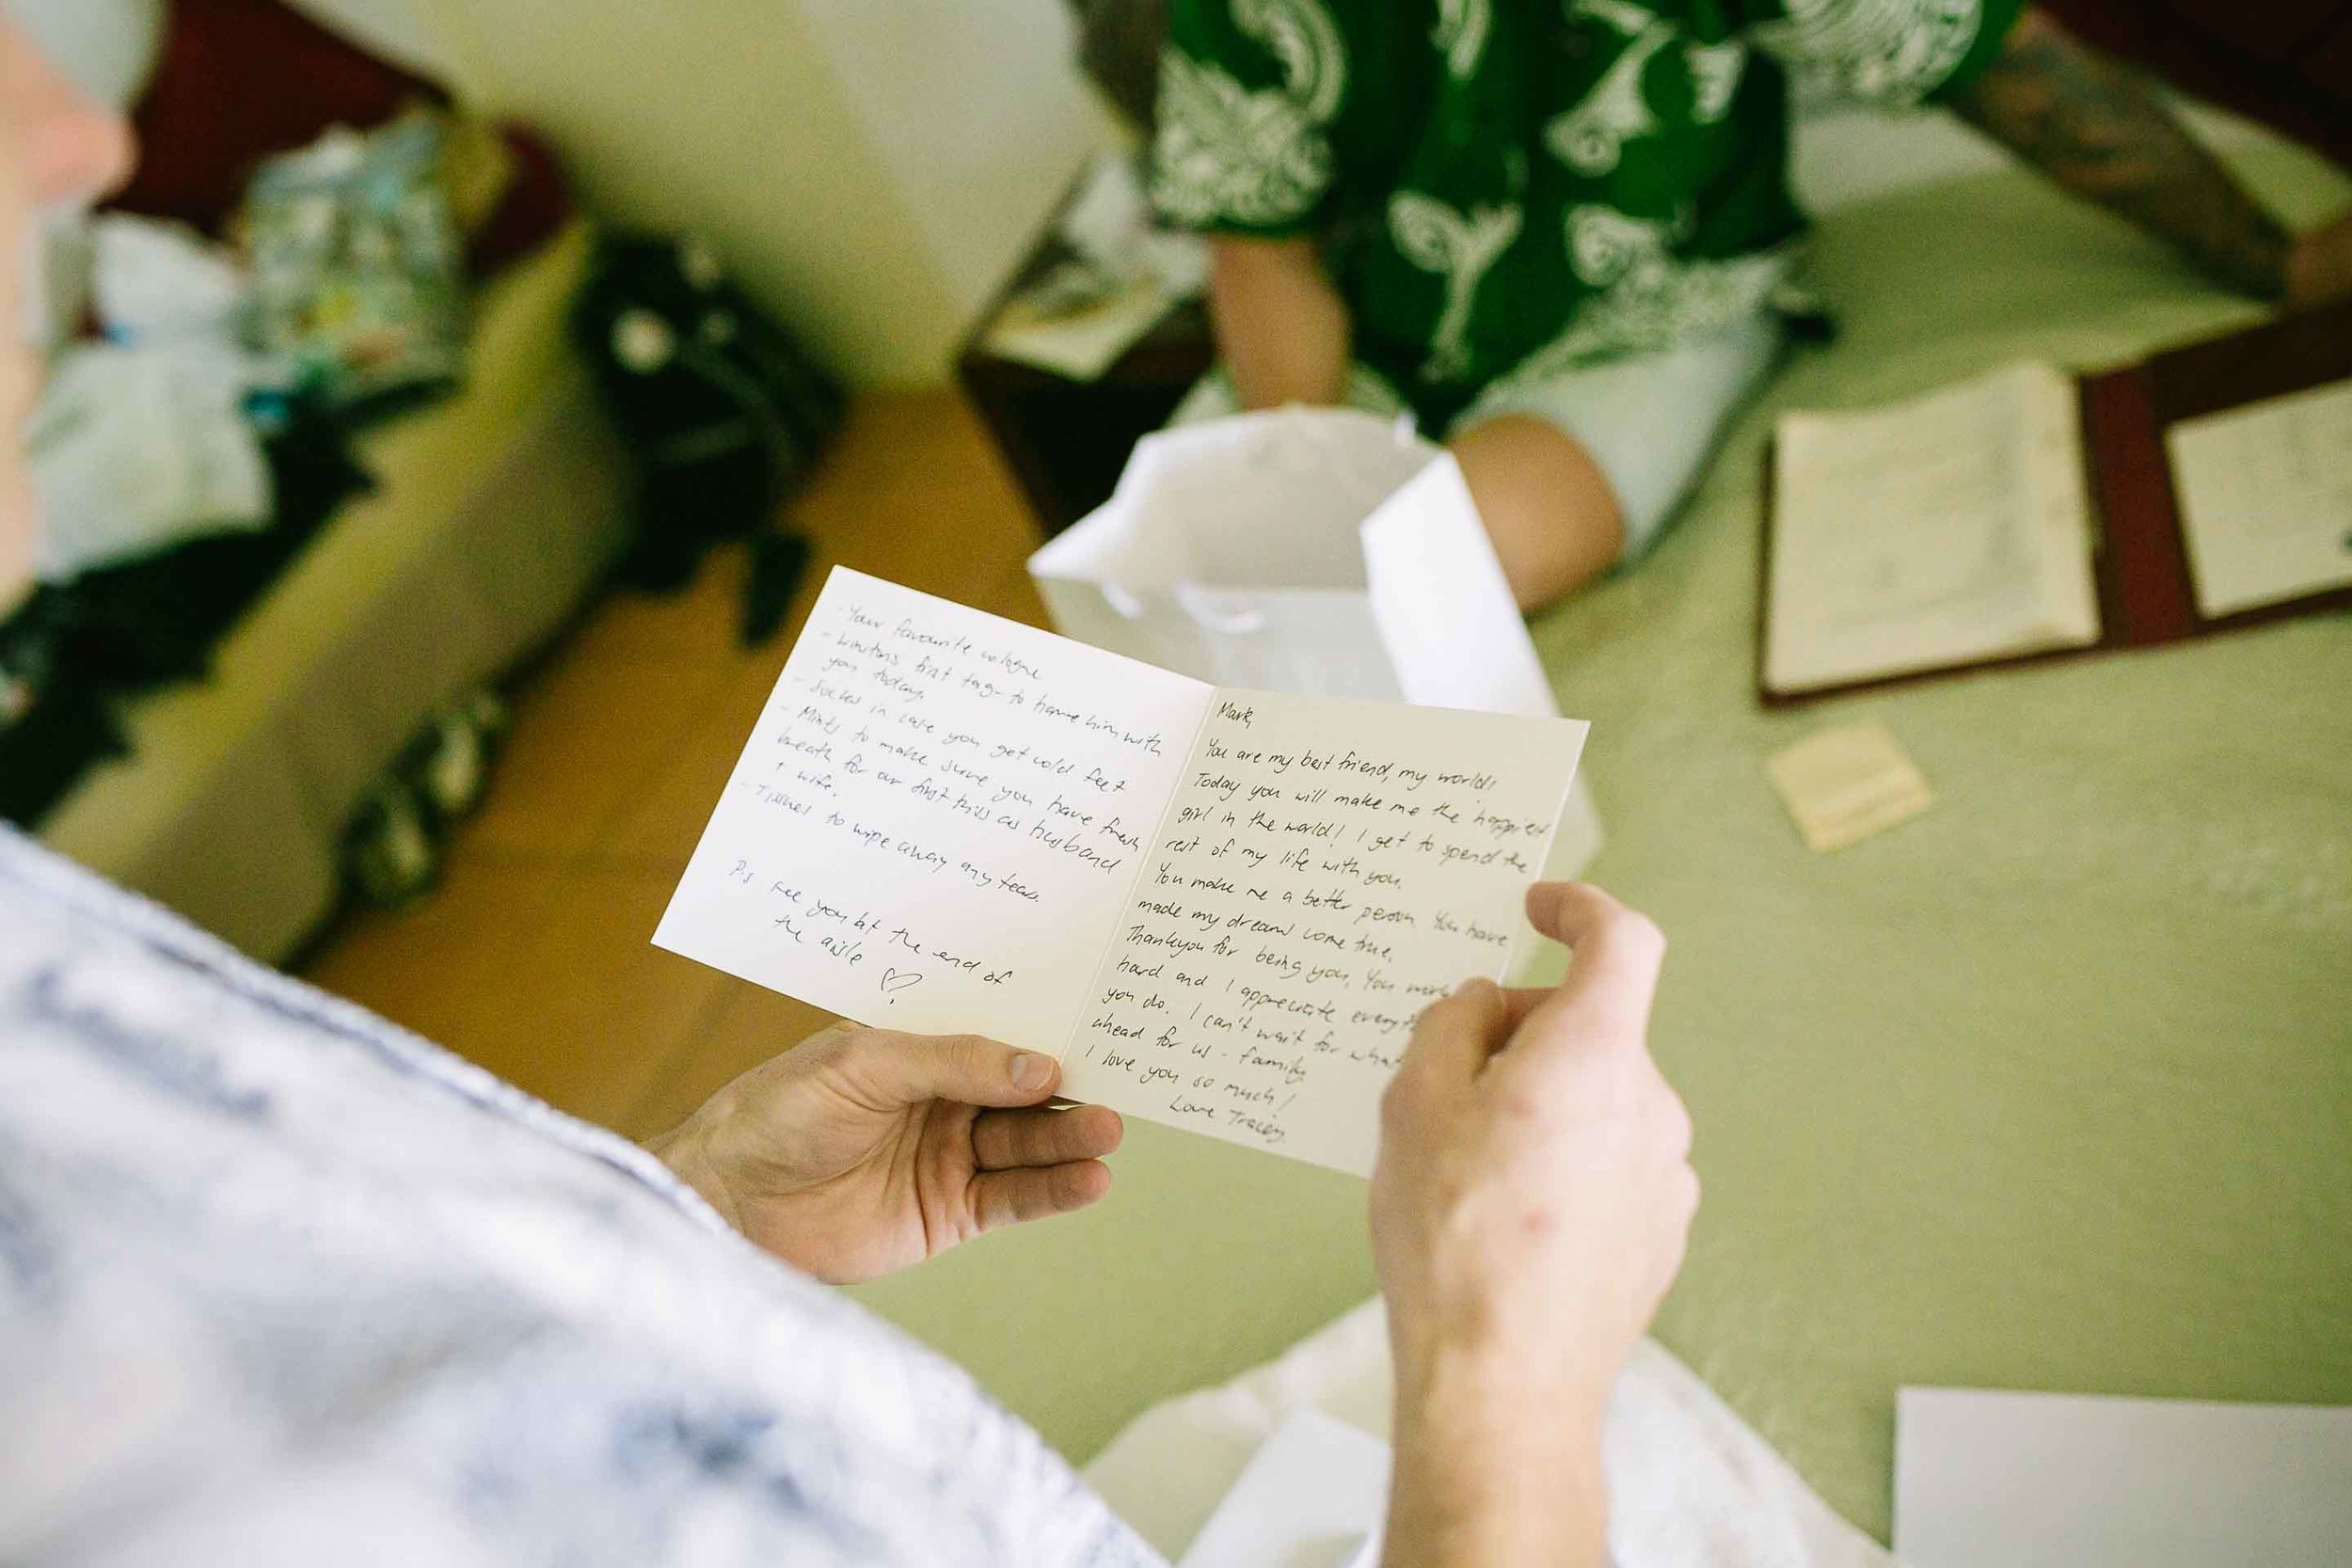 - Your favourite cologne
- Winstons first tag - to have him with
you today.
- Socks in case you get cold feet
- Mints to make sure you have fresh
breath for our first kiss as husband
+ wife.
- Tissues to wipe away any tears.
P.s see you at the end of
the aisle ♡
Mark,
You are my best friend, my world!
Today you will make me the happiest
girl in the world! I get to spend the
rest of my life with you.
You make me a better person. You have
made my dreams come true.
Thankyou for being you. You work
hard and I appreciate everyth
you do. I can't wait for what
ahead for us - family.
I love you so much!
Love Tracey.